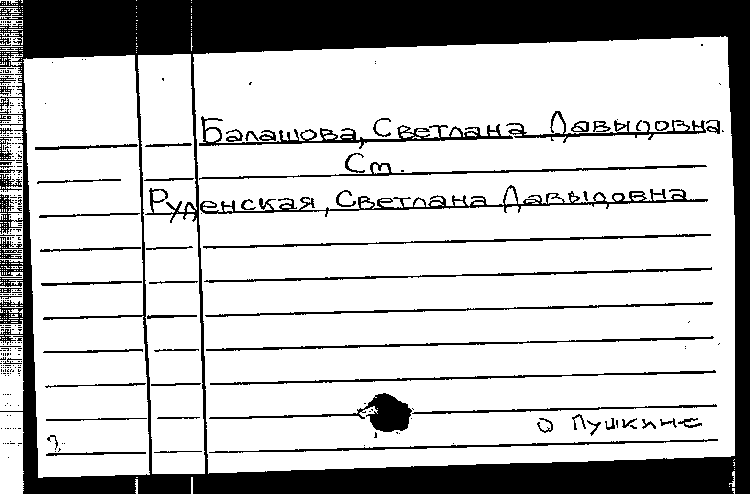 Балашова, Светлана Давыдовна.
Ст.
Руденская, Светлана Давыдовна
о Пушкине